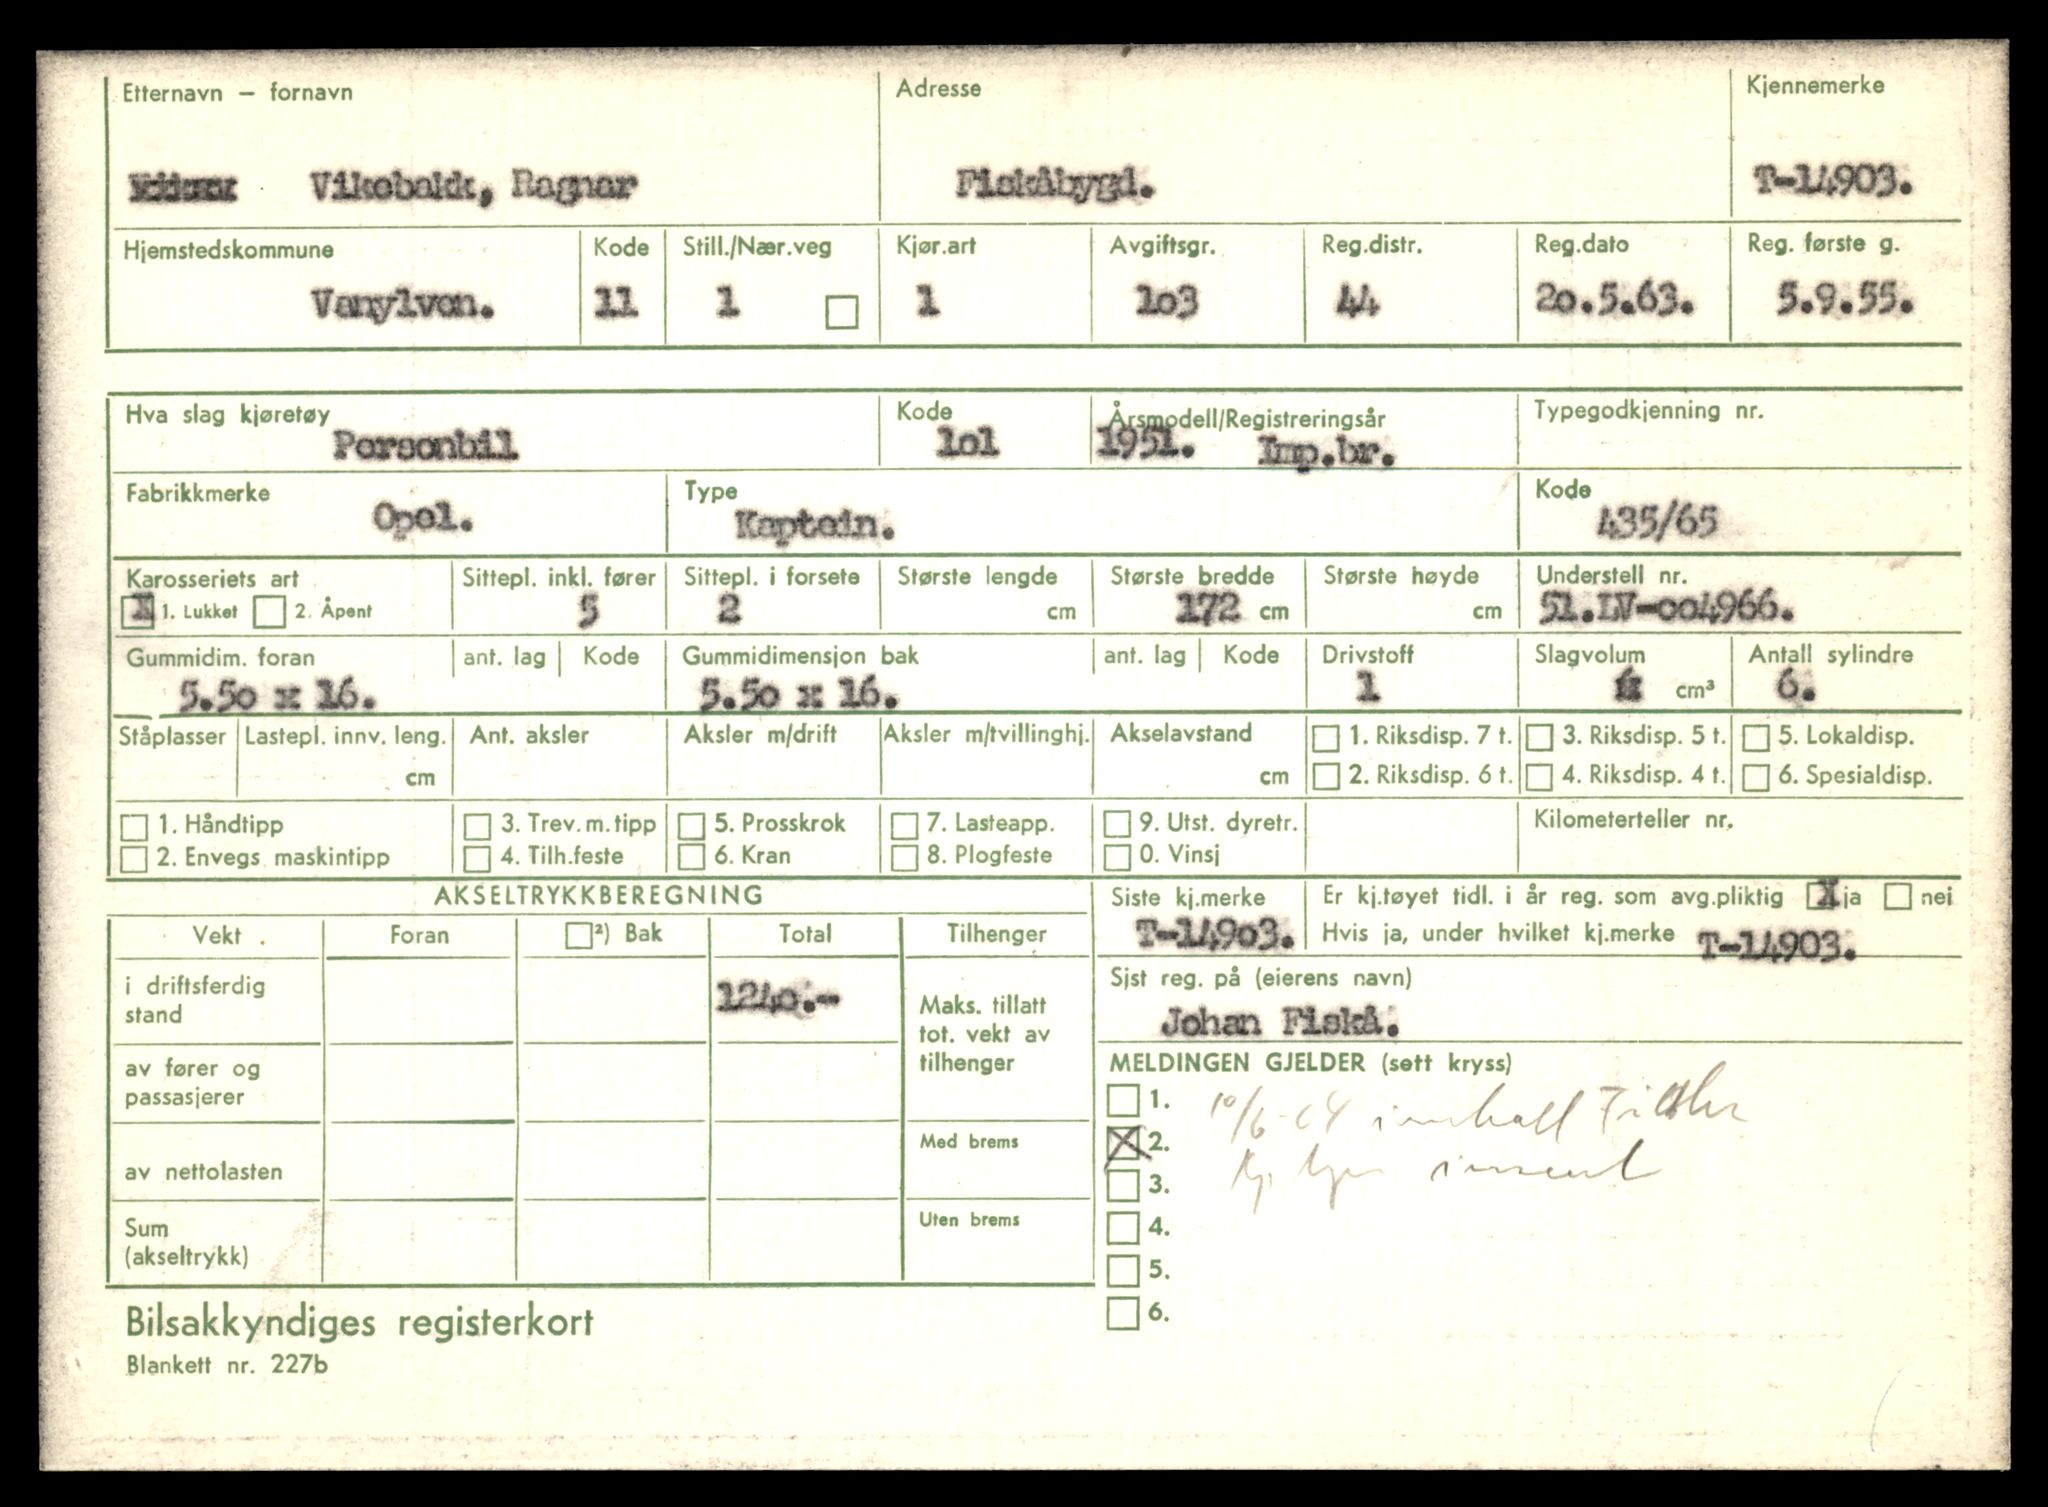 Etternavn – fornavn Adresse Kjennemerke
Vikebakk, Ragnar Fiskåbygd. T-14903.
Hjemstedskommune Kode Still./Nær.veg Kjør.art Avgiftsgr. Reg.distr. Reg.dato Reg. første g.
Vanylven. 11 1 1 1o3 44 2o.5.63. 5.9.55.
Hva slag kjøretøy Kode Årsmodell/Registreringsår Typegodkjenning nr.
Personbil 1o1 1951. Imp.br.
Fabrikkmerke Type Kode
Opel. Kaptein. 435/65
Karosseriets art Sittepl. inkl. fører Sittepl. i forsete Største lengde Største bredde Største høyde Understell nr.
X 1. Lukket 2. Åpent 5 2 cm 172 cm cm 51.LV-oo4966.
Gummidim. foran ant. lag Kode Gummidimensjon bak ant. lag Kode Drivstoff Slagvolum Antall sylindre
5.5o x 16. 5.5o x 16. 1 cm³ 6.
Ståplasser Lastepl. innv. leng. Ant. aksler Aksler m/drift Aksler m/tvillinghj. Akselavstand 1. Riksdisp. 7 t. 3. Riksdisp. 5 t. 5. Lokaldisp.
cm cm 2. Riksdisp. 6 t. 4. Riksdisp. 4 t. 6. Spesialdisp.
1. Håndtipp 3. Trev. m. tipp 5. Prosskrok 7. Lasteapp. 9. Utst. dyretr. Kilometerteller nr.
2. Envegs maskintipp 4. Tilh.feste 6. Kran 8. Plogfeste 0. Vinsj
AKSELTRYKKBEREGNING Siste kj.merke Er kj.tøyet tidl. i år reg. som avg.pliktig X ja nei
T-149o3. Hvis ja, under hvilket kj.merke T-14903.
Vekt Foran ²) Bak Total Tilhenger
Sist reg. på (eierens navn)
i driftsferdig stand 1240.- Maks. tillatt tot. vekt av tilhenger
Johan Fiskå.
MELDINGEN GJELDER (sett kryss)
av fører og passasjerer
1. 10/6-64
Med brems X 2.
av nettolasten 3.
Uten brems 4.
Sum (akseltrykk)
5.
6.
Bilsakkyndiges registerkort
Blankett nr. 227b